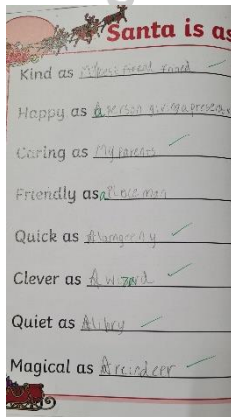 Santa is as
Kind as My best friend
Happy as A person giving a present
Caring as My Parents
Friendly as a Police man
Quick as
Clever as A wizard
Quiet as A libry
Magical as A reindeer